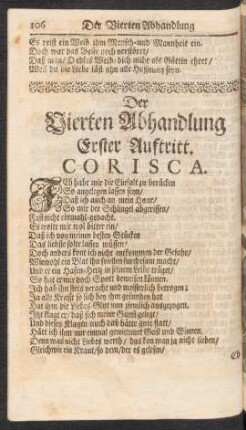 106 Der Vierten Abhandlung
Es reist ein Weib ihm Mensch- und Mannheit ein.
Doch war das Beste noch verstöret/
Daß man/ O edles Weib/ dich nicht als Göttin ehret/
Weil du die Liebe läst ohn alle Hoffnung seyn.
Der
Vierten Abhandlung
Erster Auftritt.
CORISCA.
Ich hatte mir die Einfalt zu berücken
So angelegen lassen seyn/
Daß ich auch an mein Haar/
So mir der Schängel abgerissen/
Fast nicht einmahl gedacht.
Es wolte mir wol bitter ein/
Daß ich von meinen besten Stücken
Das liebste solte lassen müssen/
Doch anders kont ich nicht entkommen der Gefahr/
Wiewohl ein Rath ihn furchtsam macht/
Und er ein Hasen-Hertz in seinem Leibe träget/
So hat er mir doch Spott beweisen können.
Ich hab ihn stets veracht und meisterlich betrogen:
In alle Krafft so sich bey ihm gefunden hat
Hat ihm die Liebes-Glut nun ziemlich ausgezogen.
Itzt klagt er/ daß sich meine Gunst geleget/
Und dieses Klagen auch das hätte gute statt/
Hätt ich ihm nur einmal gewidmet Geist und Sinnen.
Denn was nicht Liebes werth/ das kan man ja nicht lieben/
Gleichwie ein Kraut/ so dem/ der es gelesen/